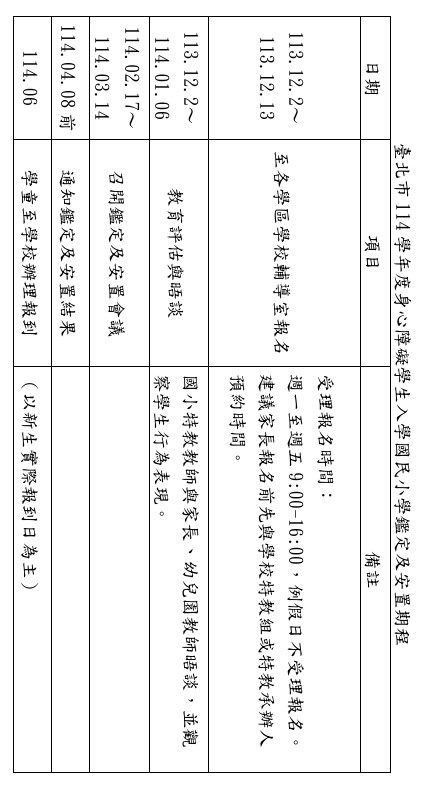 臺北市 114 學年度身心障礙學生入學國民小學鑑定及安置期程
日期
項目
備註
113.12.2~
113.12.13
至各學區學校輔導室報名
受理報名時間：
週一至週五 9:00-16:00，例假日不受理報名。
建議家長報名前先與學校特教組或特教承辦人
預約時間。
113.12.2~
114.01.06
教育評估與晤談
國小特教教師與家長、幼兒園教師晤談，並觀
察學生行為表現。
114.02.17~
114.03.14
召開鑑定及安置會議
114.04.08 前
通知鑑定及安置結果
114.06
學童至學校辦理報到
（以新生實際報到日為主）